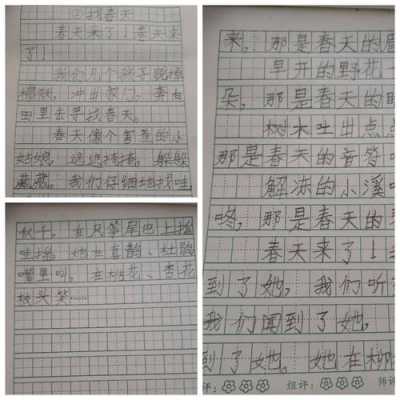 ②找春天
春天来了!春天来
了!
我们几个孩子脱掉
棉袄,冲出家门,奔向
田里去寻找春天。
春天像个害羞的小
姑娘,遮遮掩掩,躲躲
藏藏。我们仔细地找哇
来,那是春天的眉
早开的野花
朵,那是春天的眼
树木吐出点点
那是春天的音符
解冻的小溪
咚,那是春天的
春天来了!
到了她,我们听
我们闻到了她,
到了她。她在柳
评: 组评: 师评
秋千,在风筝尾巴上摇
哇摇,她在喜鹊、杜鹃
嘴里叫,在桃花、杏花
枝头笑……